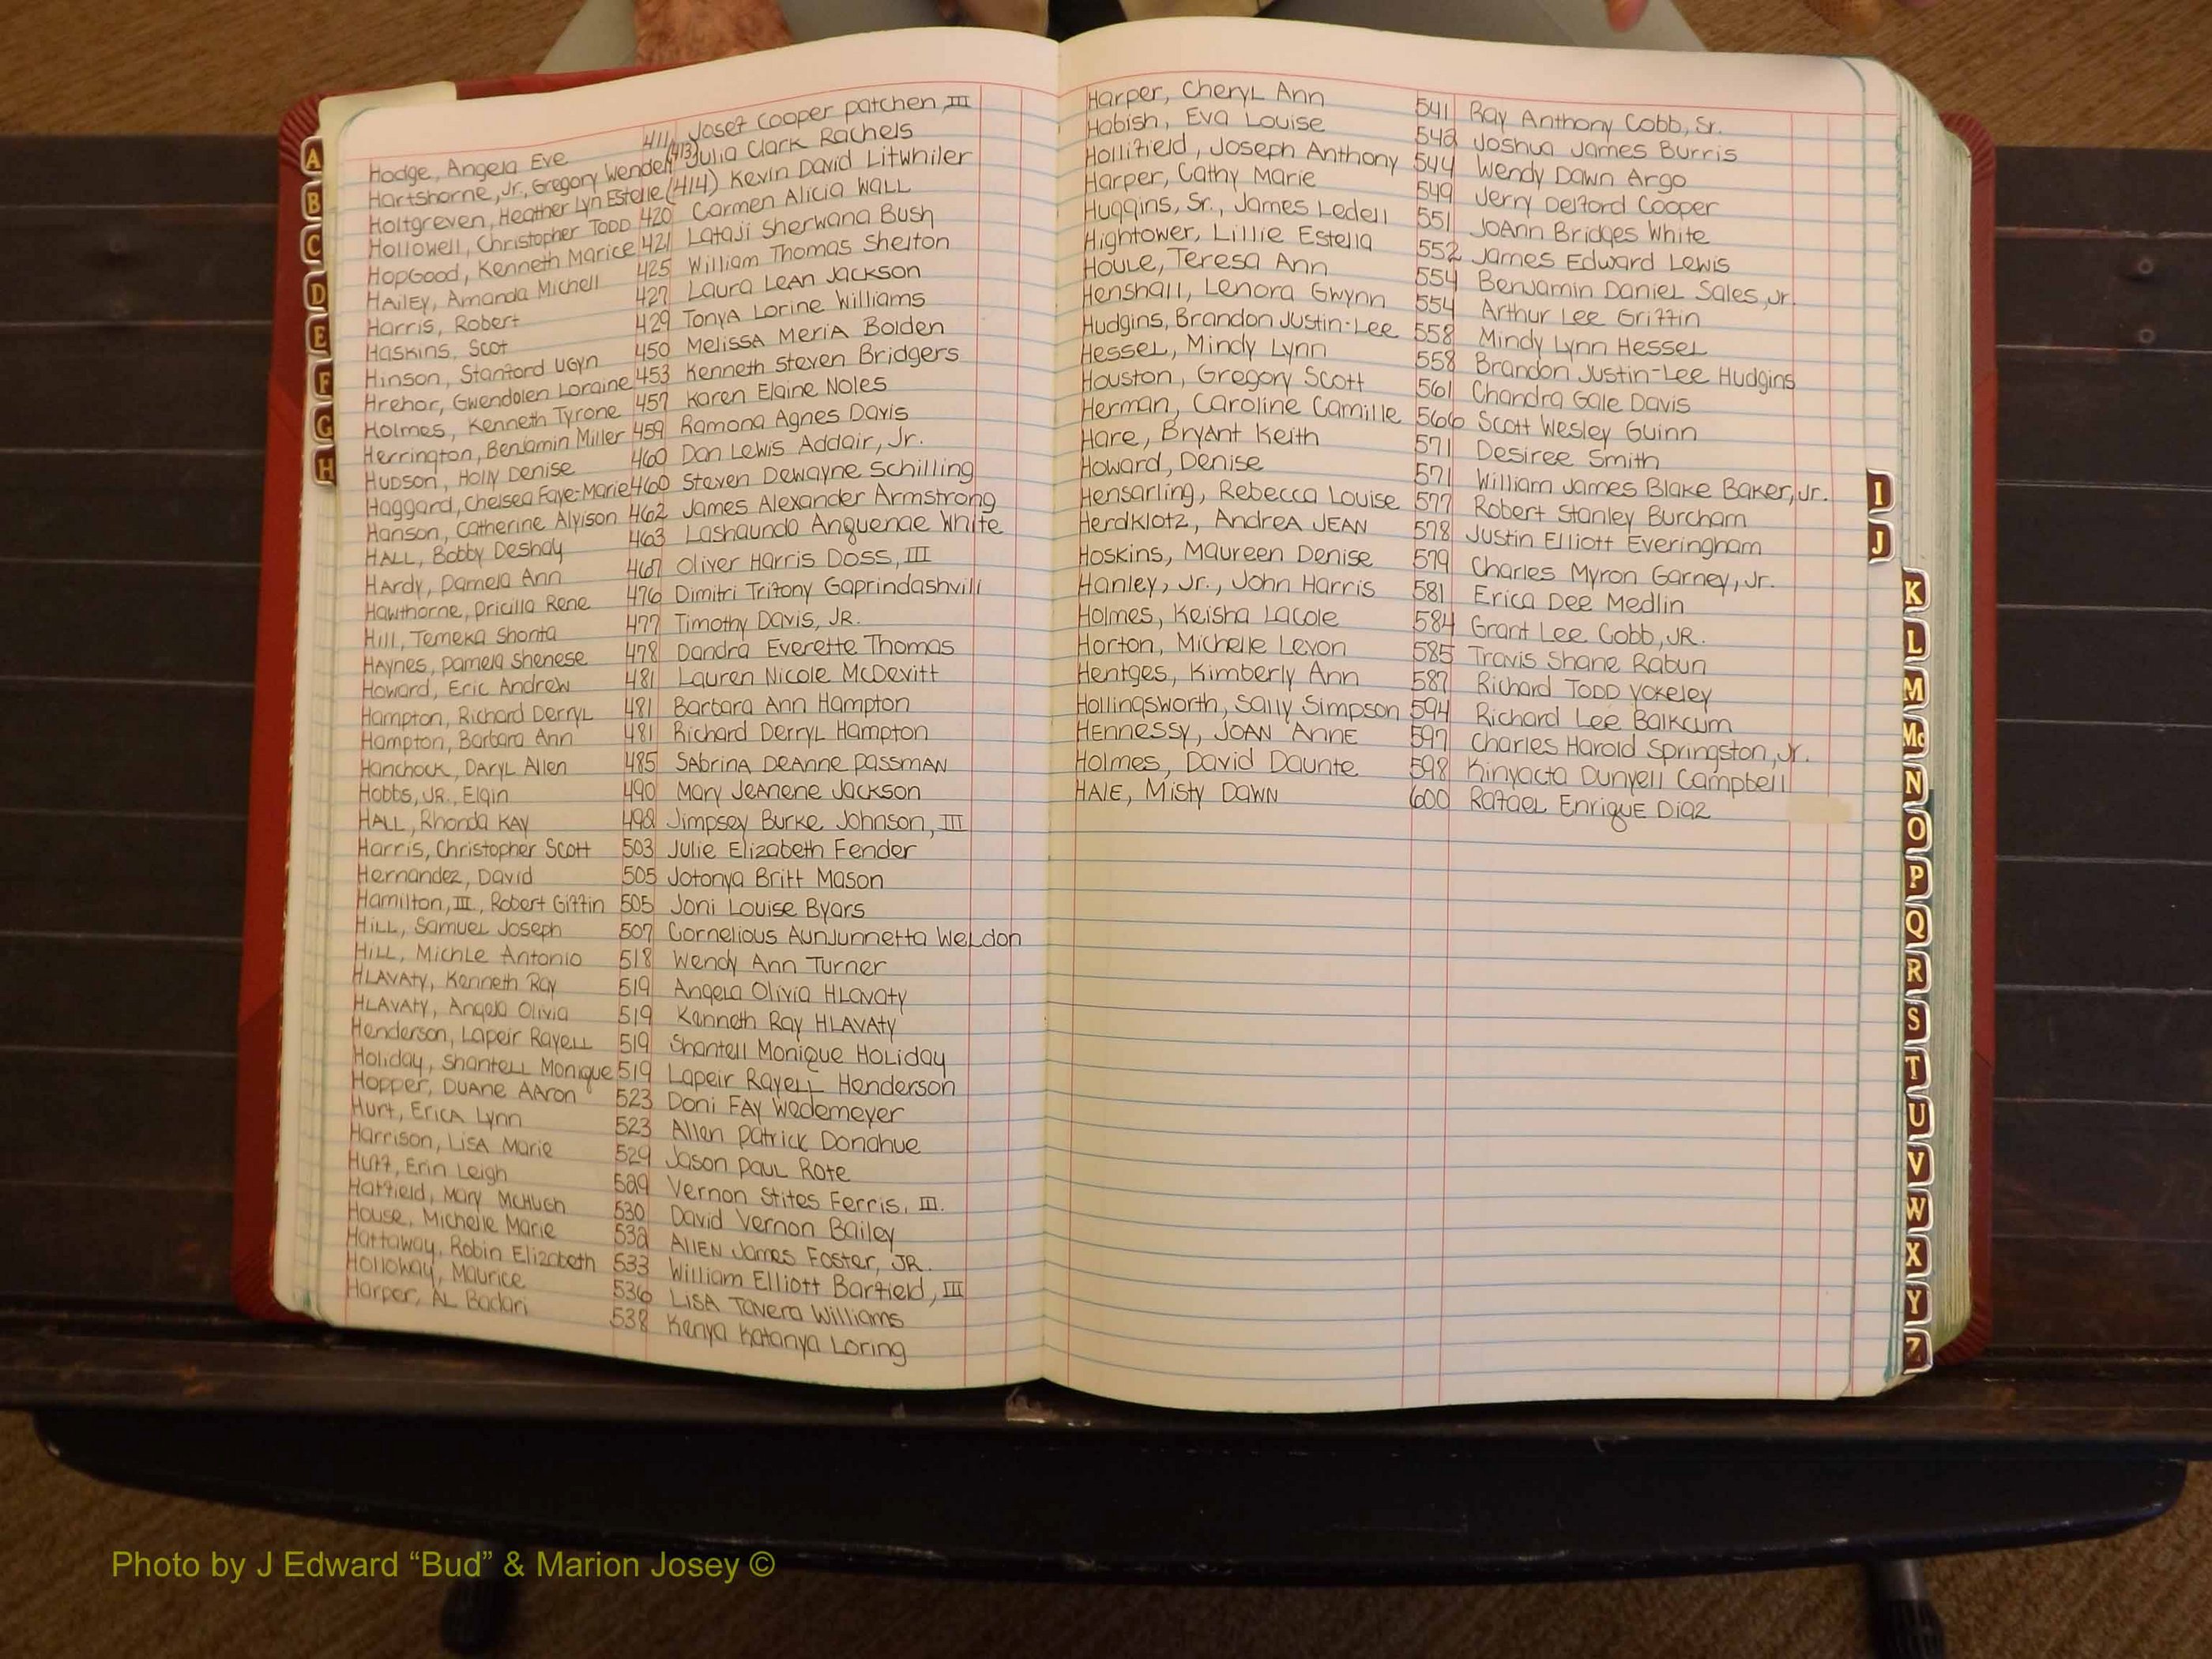 Hodge, Angela Eve 411 Josef Cooper Patchen, III
Hartshorne, Jr., Gregory Wendell (413) Julia Clark Rachels
Holtgreven, Heather Lyn Estelle (414) Kevin David Litwhiler
Hollowell, Christopher TODD 420 Carmen Alicia Wall
HopGood, Kenneth Marice 421 Lataji Sherwana Bush
HAiley, Amanda Michell 425 William Thomas Shelton
Harris, Robert 427 Laura LeAn Jackson
Haskins, Scot 429 TonyA Lorine Williams
Hinson, Stanford UGyn 450 MelissA MeriA Bolden
Hrehor, Gwendolen Loraine 453 Kenneth Steven Bridgers
Holmes, Kenneth Tyrone 457 Karen Elaine Noles
Herrington, Benjamin Miller 459 Ramona Agnes Davis
Hudson, Holly Denise 460 Dan Lewis Addair, Jr.
Haggard, Chelsea Faye-Marie 460 Steven Dewayne Schilling
Hanson, Catherine Alyison 462 James Alexander Armstrong
HALL, Bobby Deshay 463 Lashaunda Anquenae White
HArdy, Pamela Ann 467 Oliver Harris Doss, III
Hawthorne, Pricilla Rene 476 Dimitri Trifony Gaprindashvili
Hill, Temeka Shonta 477 Timothy Davis, JR.
HAynes, Pamela Shenese 478 Dandra Everette Thomas
Howard, Eric Andrew 481 Lauren Nicole McDevitt
Hampton, Richard Derryl 481 Barbara Ann Hampton
Hampton, Barbara Ann 481 Richard Derryl Hampton
Hanchock, Daryl Allen 485 SAbrinA DeAnne PassmAN
Hobbs, JR., Elgin 490 Mary JeAnene Jackson
HALL, Rhonda KAY 498 Jimpsey Burke Johnson, III
Harris, Christopher Scott 503 Julie Elizabeth Fender
Hernandez, David 505 Jotonya Britt Mason
Hamilton, III, Robert Giffin 505 Joni Louise Byars
HiLL, Samuel Joseph 507 Cornelious AunJunnetta WeLdon
HiLL, Michle Antonio 518 Wendy Ann Turner
HLAVAty, Kenneth Ray 519 Angela Olivia HLavaty
HLAVAty, Angela Olivia 519 Kenneth Ray HLAVAty
Henderson, Lapeir RayeLL 519 Shantell Monique HoLiday
Holiday, ShanteLL Monique 519 Lapeir RayeLL Henderson
Hopper, DuAne AAron 523 Doni FAY Wedemeyer
Hurt, EricA Lynn 523 Allen Patrick Donahue
Harrison, LiSA Marie 529 Jason PauL Rote
Huff, Erin Leigh 529 Vernon Stites Ferris, III.
Hatfield, Mary McHugh 530 David Vernon Bailey
House, Michelle Marie 532 AllEN James Foster, JR.
Hattaway, Robin Elizabeth 533 William Elliott Barfield, III
Holloway, Maurice 536 LiSA Tavera Williams
Harper, AL Badari 538 Kenya Katanya Loring
Harper, Cheryl Ann 541 Ray Anthony Cobb, Sr.
Habish, Eva Louise 542 Joshua James Burris
Hollifield, Joseph Anthony 544 Wendy Dawn Argo
Harper, Cathy Marie 549 Jerry Delford Cooper
Huggins, Sr., James Ledell 551 JoAnn Bridges White
Hightower, Lillie Estella 552 James Edward Lewis
Houle, Teresa Ann 554 Benjamin Daniel Sales, Jr.
Henshall, Lenora Gwynn 554 Arthur Lee Griffin
Hudgins, Brandon Justin-Lee 558 Mindy Lynn Hessel
Hessel, Mindy Lynn 558 Brandon Justin-Lee Hudgins
Houston, Gregory Scott 561 Chandra Gale Davis
Herman, Caroline Camille 566 Scott Wesley Guinn
Hare, BryAnt Keith 571 Desiree Smith
Howard, Denise 571 William James Blake Baker, Jr.
Hensarling, Rebecca Louise 577 Robert Stanley Burcham
Herdklotz, AndreA JEAN 578 Justin Elliott Everingham
Hoskins, Maureen Denise 579 Charles Myron Garney, Jr.
Hanley, Jr., John Harris 581 Erica Dee Medlin
Holmes, Keisha Lacole 584 Grant Lee Cobb, JR.
Horton, Michelle Levon 585 Travis Shane Rabun
Hentges, Kimberly Ann 587 Richard TODD Yokeley
Hollingsworth, Sally Simpson 594 Richard Lee Balkcum
HENNESSY, JOAN ANNE 597 Charles Harold Springston, Jr.
Holmes, David Daunte 598 Kinyacta Dunyell Campbell
HAlE, Misty DAWN 600 Rafael Enrique Diaz
A
B
C
D
E
F
G
H
I
J
K
L
M
Mc
N
O
P
Q
R
S
T
U
V
W
X
Y
Z
Photo by J Edward “Bud” & Marion Josey ©